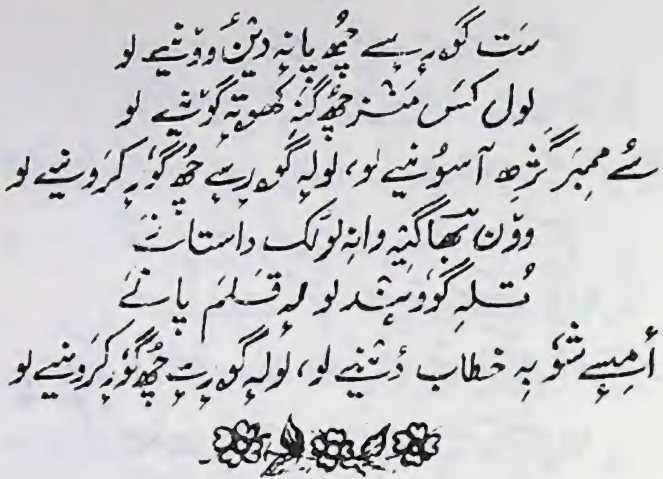 ست گورٕسے چھُ پانہٕ دِیُن وۄنیے لو
لول کس منٛز چھُ گنہٕ کھوتہٕ گۆنیے لو
سُے ممبر گژھِ آسونیے لو، لولہٕ گورٕسے چھُ گۆر کرونیے لو
وۄن بھاگنہٕ وانہٕ لوٗلک داستانے
تُلہٕ گوو سٕندلو مہٕ قلم پانے
أمِسے شو بہِ خطاب دِنیے لو، لولہٕ گورٕے چھُ گۆر کرونیے لو